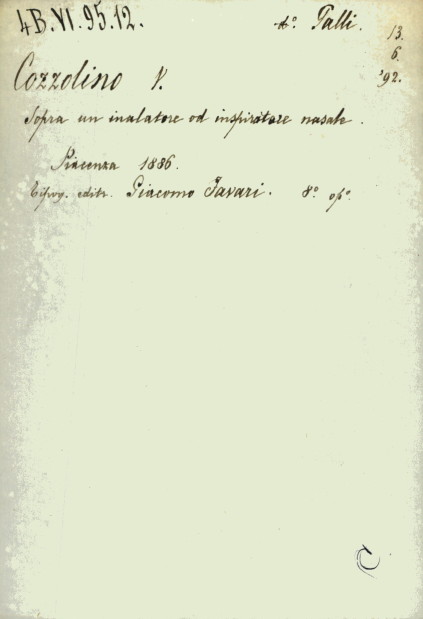 4B.VI.95.12.
d.° Palli.
13.
6.
'92.
Cozzolino V.
Sopra un inalatore od inspiratore nasale.
Piacenza 1886.
Tipog. edit. Giacomo Favari. 8.° op.°